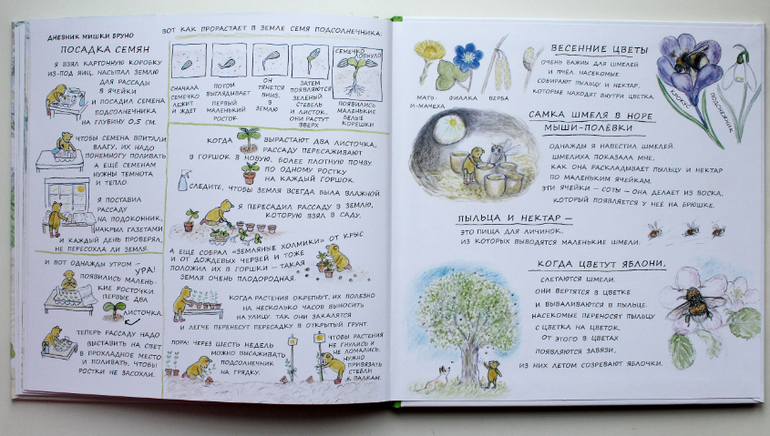 ДНЕВНИК МИШКИ БРУНО
ПОСАДКА СЕМЯН
Я ВЗЯЛ КАРТОННУЮ КОРОБКУ
ИЗ-ПОД ЯИЦ, НАСЫПАЛ ЗЕМЛЮ
ДЛЯ РАССАДЫ
В ЯЧЕЙКИ
И ПОСАДИЛ СЕМЕНА
ПОДСОЛНЕЧНИКА
НА ГЛУБИНУ 0,5 СМ.
ЧТОБЫ СЕМЕНА ВПИТАЛИ
ВЛАГУ, ИХ НАДО
ПОНЕМНОГУ ПОЛИВАТЬ
А ЕЩЁ СЕМЕНАМ
НУЖНЫ ТЕМНОТА
И ТЕПЛО.
Я ПОСТАВИЛ
РАССАДУ
НА ПОДОКОННИК,
НАКРЫЛ ГАЗЕТАМИ
И КАЖДЫЙ ДЕНЬ ПРОВЕРЯЛ,
НЕ ПЕРЕСОХЛА ЛИ ЗЕМЛЯ.
И ВОТ ОДНАЖДЫ УТРОМ –
УРА!
ПОЯВИЛИСЬ МАЛЕНЬ-
КИЕ РОСТОЧКИ.
ПЕРВЫЕ ДВА
ЛИСТОЧКА.
ТЕПЕРЬ РАССАДУ НАДО
ВЫСТАВИТЬ НА СВЕТ
В ПРОХЛАДНОЕ МЕСТО
И ПОЛИВАТЬ, ЧТОБЫ
РОСТКИ НЕ ЗАСОХЛИ.
ВОТ КАК ПРОРАСТАЕТ В ЗЕМЛЕ СЕМЯ ПОДСОЛНЕЧНИКА:
СНАЧАЛА
СЕМЕЧКО
ЛЕЖИТ
И ЖДЁТ
ПОТОМ
ВЫГЛЯДЫВАЕТ
ПЕРВЫЙ
МАЛЕНЬКИЙ
РОСТОК
ОН
ТЯНЕТСЯ
ВНИЗ,
В
ЗЕМЛЮ
ЗАТЕМ
ПОЯВЛЯЮТСЯ
ЗЕЛЁНЫЙ
СТЕБЕЛЬ
И ЛИСТОК,
ОНИ РАСТУТ
ВВЕРХ
СЕМЕЧКО
ЛОПНУЛО
ПОЯВИЛИСЬ
МАЛЕНЬКИЕ
БЕЛЫЕ
КОРЕШКИ
КОГДА ВЫРАСТАЮТ ДВА ЛИСТОЧКА,
РАССАДУ ПЕРЕСАЖИВАЮТ
В ГОРШОК В НОВУЮ, БОЛЕЕ ПЛОТНУЮ ПОЧВУ
ПО ОДНОМУ РОСТКУ
НА КАЖДЫЙ ГОРШОК.
СЛЕДИТЕ, ЧТОБЫ ЗЕМЛЯ ВСЕГДА БЫЛА ВЛАЖНОЙ
Я ПЕРЕСАДИЛ РАССАДУ В ЗЕМЛЮ,
КОТОРУЮ ВЗЯЛ В САДУ.
А ЕЩЁ СОБРАЛ «ЗЕМЛЯНЫЕ ХОЛМИКИ» ОТ КРЫС
И ОТ ДОЖДЕВЫХ ЧЕРВЕЙ И ТОЖЕ
ПОЛОЖИЛ ИХ В ГОРШКИ – ТАКАЯ
ЗЕМЛЯ ОЧЕНЬ ПЛОДОРОДНАЯ.
КОГДА РАСТЕНИЯ ОКРЕПНУТ, ИХ ПОЛЕЗНО
НА НЕСКОЛЬКО ЧАСОВ ВЫНОСИТЬ
НА УЛИЦУ. ТАК ОНИ ЗАКАЛЯТСЯ
И ЛЕГЧЕ ПЕРЕНЕСУТ ПЕРЕСАДКУ В ОТКРЫТЫЙ ГРУНТ.
ПОРА! ЧЕРЕЗ ШЕСТЬ НЕДЕЛЬ
МОЖНО ВЫСАЖИВАТЬ
ПОДСОЛНЕЧНИК
НА ГРЯДКУ.
ЧТОБЫ РАСТЕНИЯ
НЕ ГНУЛИСЬ И
НЕ ЛОМАЛИСЬ,
НУЖНО
ПРИВЯЗАТЬ
СТЕБЛИ
К ПАЛКАМ.
МАТЬ-
И-МАЧЕХА
ФИАЛКА
ВЕРБА
ВЕСЕННИЕ ЦВЕТЫ
ОЧЕНЬ ВАЖНЫ ДЛЯ ШМЕЛЕЙ
И ПЧЁЛ. НАСЕКОМЫЕ
СОБИРАЮТ ПЫЛЬЦУ И НЕКТАР,
КОТОРЫЕ НАХОДЯТ ВНУТРИ ЦВЕТКА.
КРОКУС
ПОДСНЕЖНИК
САМКА ШМЕЛЯ В НОРЕ
МЫШИ-ПОЛЁВКИ
ОДНАЖДЫ Я НАВЕСТИЛ ШМЕЛЕЙ.
ШМЕЛИХА ПОКАЗАЛА МНЕ,
КАК ОНА РАСКЛАДЫВАЕТ ПЫЛЬЦУ И НЕКТАР
ПО МАЛЕНЬКИМ ЯЧЕЙКАМ.
ЭТИ ЯЧЕЙКИ – СОТЫ – ОНА ДЕЛАЕТ ИЗ ВОСКА,
КОТОРЫЙ ПОЯВЛЯЕТСЯ У НЕЁ НА БРЮШКЕ.
ПЫЛЬЦА И НЕКТАР –
ЭТО ПИЩА ДЛЯ ЛИЧИНОК,
ИЗ КОТОРЫХ ВЫВОДЯТСЯ МАЛЕНЬКИЕ ШМЕЛИ.
КОГДА ЦВЕТУТ ЯБЛОНИ,
СЛЕТАЮТСЯ ШМЕЛИ.
ОНИ ВЕРТЯТСЯ В ЦВЕТКЕ
И ВЫВАЛИВАЮТСЯ В ПЫЛЬЦЕ.
НАСЕКОМЫЕ ПЕРЕНОСЯТ ПЫЛЬЦУ
С ЦВЕТКА НА ЦВЕТОК.
ОТ ЭТОГО В ЦВЕТАХ
ПОЯВЛЯЮТСЯ ЗАВЯЗИ,
ИЗ НИХ ЛЕТОМ СОЗРЕВАЮТ ЯБЛОЧКИ.